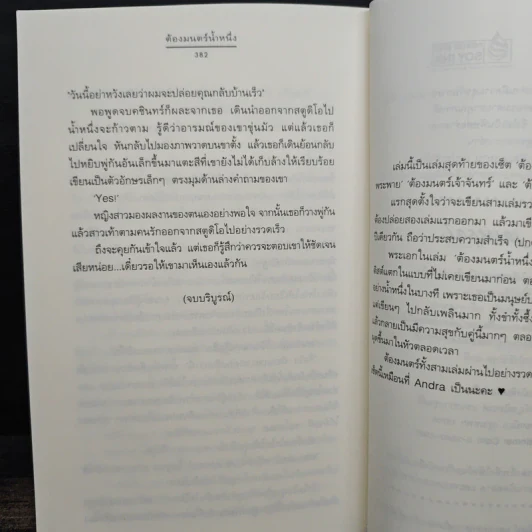 ต้องมนตร์น้ำหนึ่ง
382
'วันนี้อย่าหวังเลยว่าผมจะปล่อยคุณกลับบ้านเร็ว'
พอพูดจบคชินทร์ก็ผละจากเธอ เดินนำออกจากสตูดิโอไป
น้ำหนึ่งจะก้าวตาม รู้ดีว่าอารมณ์ของเขาขุ่นมัว แต่แล้วเธอก็
เปลี่ยนใจ หันกลับไปมองภาพวาดบนขาตั้ง แล้วเธอก็เดินย้อนกลับ
ไปหยิบพู่กันอันเล็กขึ้นมาแตะสีที่เขายังไม่ได้เก็บล้างให้เรียบร้อย
เขียนเป็นตัวอักษรเล็กๆ ตรงมุมด้านล่างคำถามของเขา
'Yes!'
หญิงสาวมองผลงานของตนเองอย่างพอใจ จากนั้นเธอก็วางพู่กัน
แล้วสาวเท้าตามคนรักออกจากสตูดิโอไปอย่างรวดเร็ว
ถึงจะคุยกันเข้าใจแล้ว แต่เธอก็รู้สึกว่าควรจะตอบเขาให้ชัดเจน
เสียหน่อย...เดี๋ยวรอให้เขามาเห็นเองแล้วกัน
(จบบริบูรณ์)
เล่มนี้เป็นเล่มสุดท้ายของเซ็ต 'ต้อง
พระพาย' 'ต้องมนตร์เจ้าจันทร์' และ 'ต้
แรกสุดตั้งใจว่าจะเขียนสามเล่มรวด
ต้องปล่อยสองเล่มแรกออกมา แล้วมาเขี
ปีเดียวกัน ถือว่าประสบความสำเร็จ (ปก
พระเอกในเล่ม 'ต้องมนตร์น้ำหนึ่ง
ติสต์แตกในแบบที่ไม่เคยเขียนมาก่อน ตอ
อย่างน้ำหนึ่งในบางที เพราะเธอเป็นมนุษย์บ
แต่เขียนๆ ไปกลับเพลินมาก ทั้งขำทั้งซึ้
แล้วกลายเป็นมีความสุขกับคู่นี้มากๆ ตลอ
ผุดขึ้นมาในหัวตลอดเวลา
ต้องมนตร์ทั้งสามเล่มผ่านไปอย่างรวด
ชุดนี้เหมือนที่ Andra เป็นนะคะ ♥